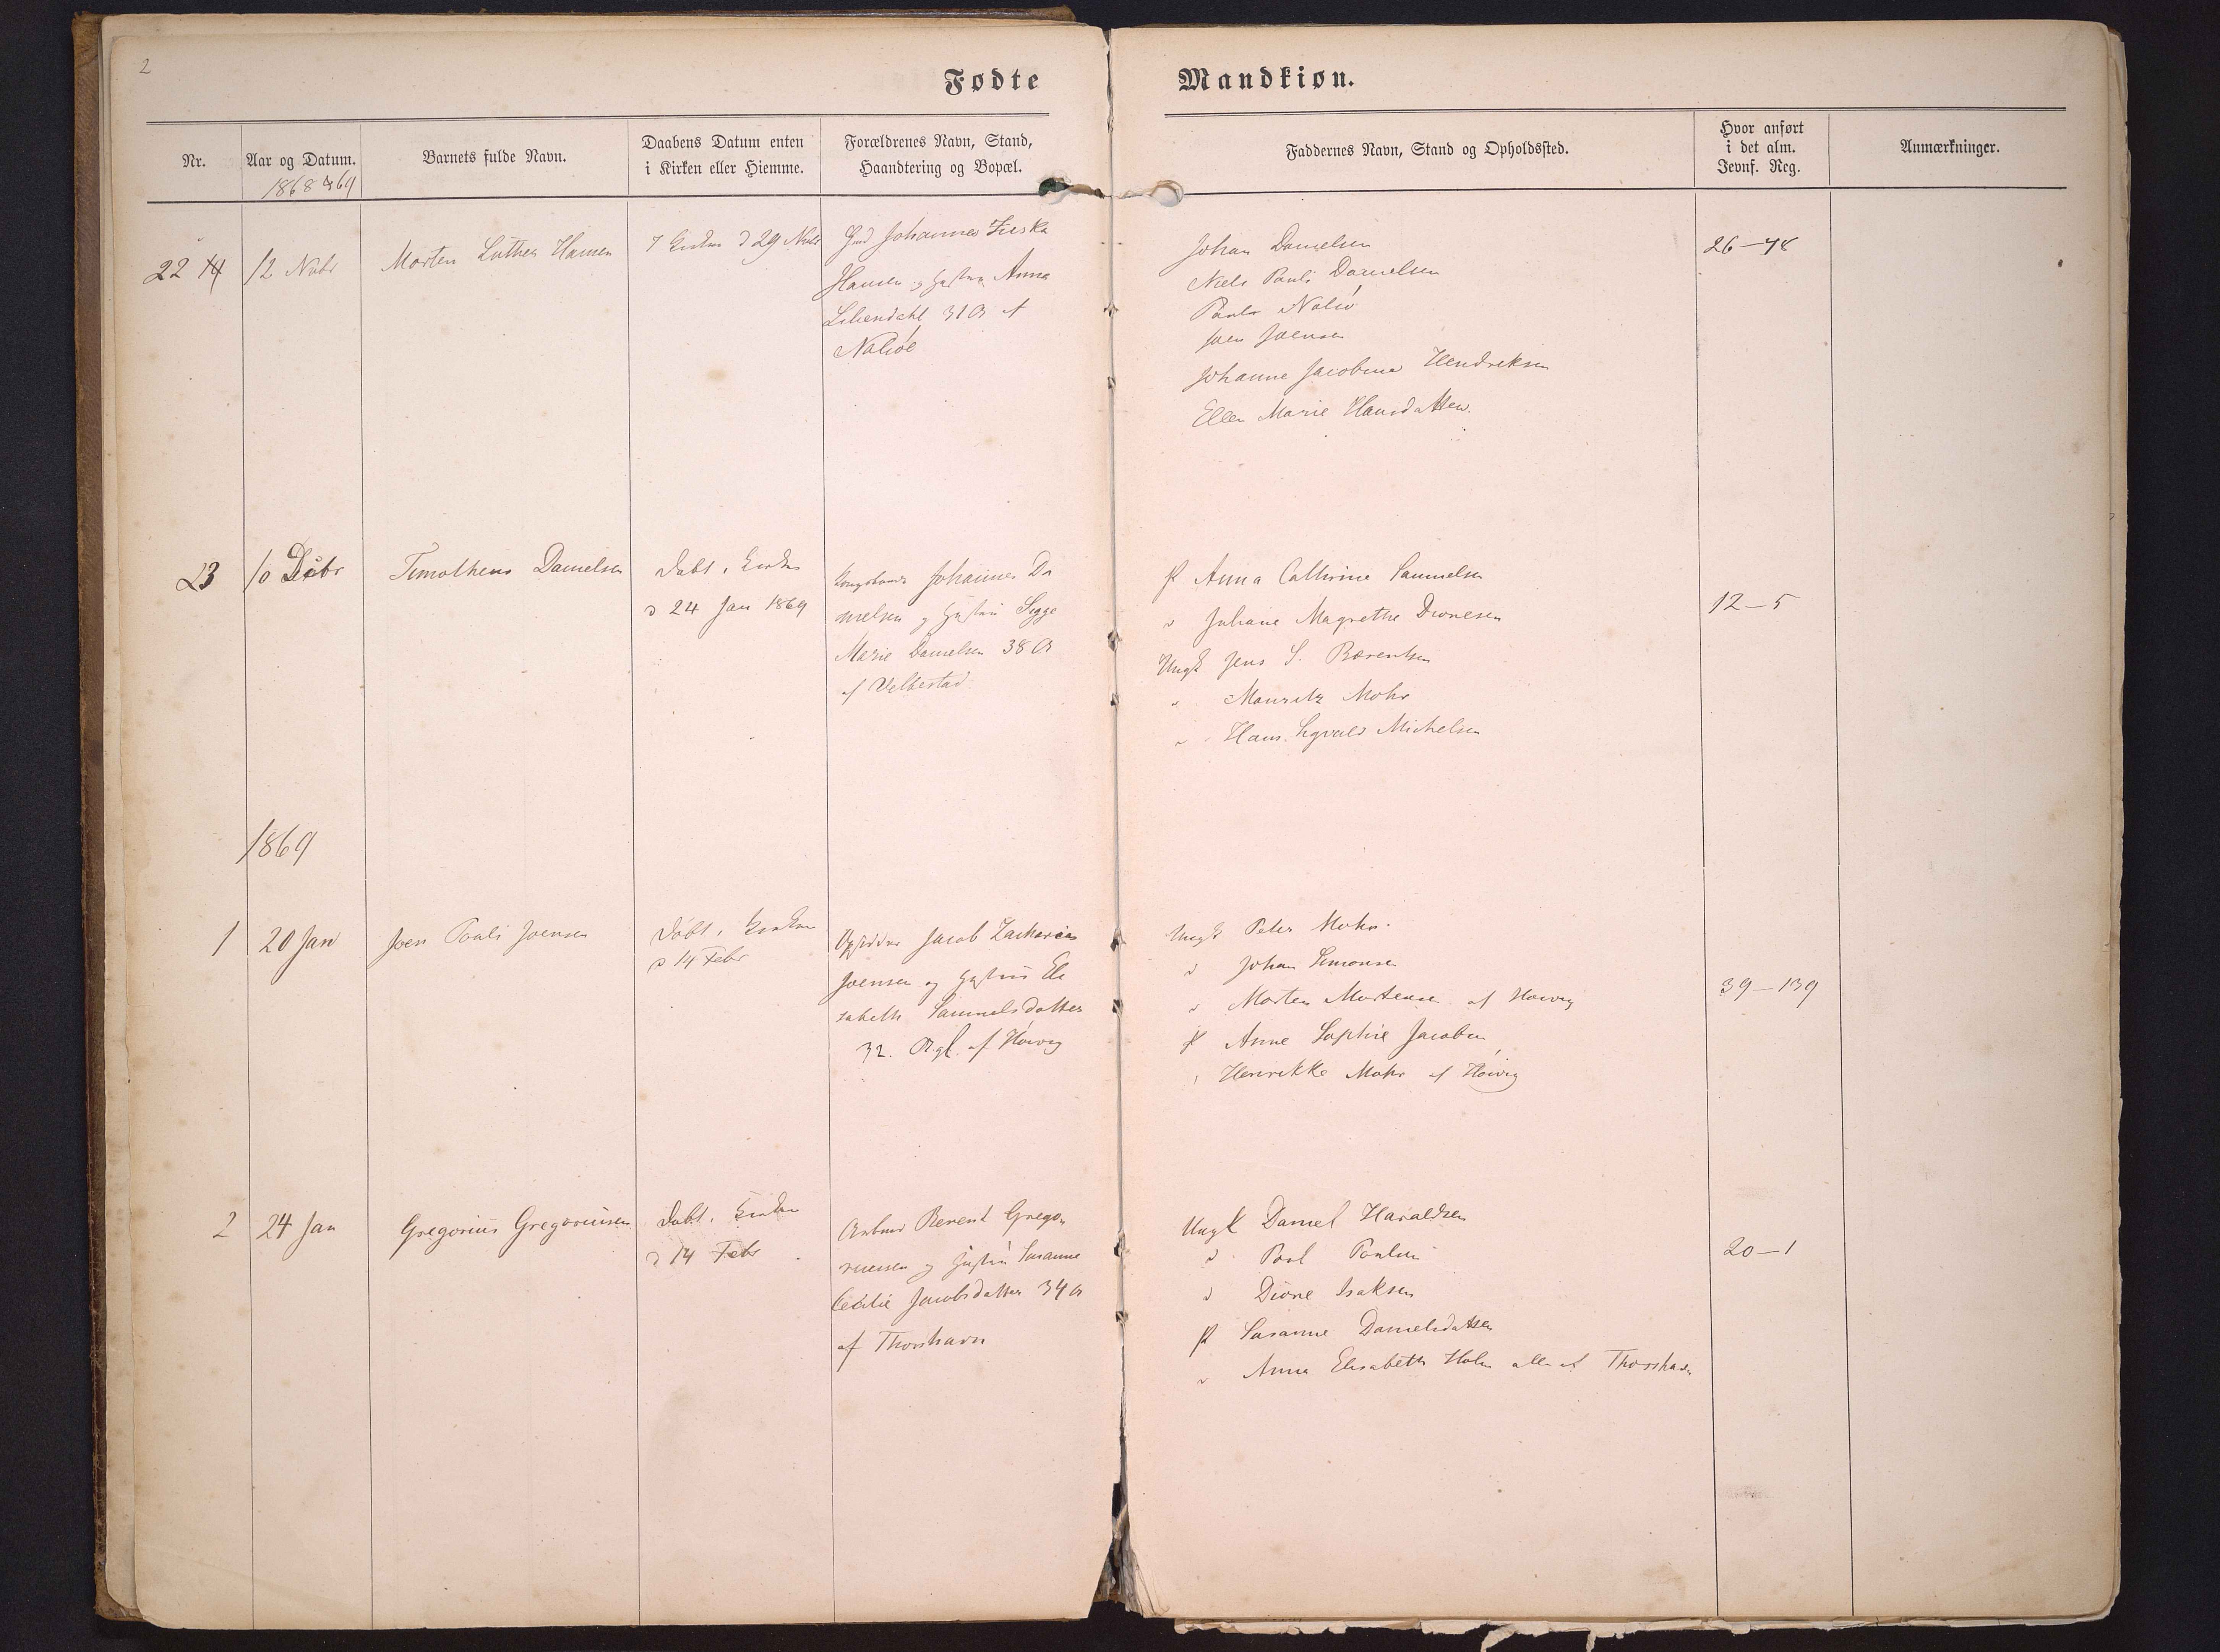 2
Fødte Mandkiøn.
Nr.
Aar og Datum.
1868 & 69
Barnets fulde Navn.
Daabens Datum enten
i Kirken eller Hiemme.
Forældrenes Navn, Stand,
Haandtering og Bopæl.
Faddernes Navn, Stand og Opholdssted.
Hvor anført
i det alm.
Jevnf. Reg.
Anmærkninger.
22
12 Nvbr
Morten Luther Hansen
29
Johannes
Hansen og Anna
31
Nolsøe
Johan Danielsen
Niels Pauli Danielsen
Nolsø
Joen Joensen
Johanne Jacobine Hendriksen
Ellen Marie Hansdatter
26-48
23
10 Dcbr
Timotheus Danielsen
Døbt i Kirken
d 24 Jan 1869
Johannes Da
nielsen og Hustru Sigge
Marie Danielsen 38
af Velbestad
P Anna Cathrine Samuelsen
Juliane Magrethe Dionesen
Ungk Jens S. Berentsen
Mauritz Mohr
Hans Sigvald Michelsen
12-5
1869
1
20 Jan
Joen Pouli Joensen
Døbt i Kirken
d 14 Febr
Opsidder Jacob Zacharias
Joensen og Hustru Eli
sabeth Samuelsdatter
32. af Höivig
Ungk Peter Mohr.
Johan Simonsen
Morten Mortensen af Hoivig
P Anne Sophie Jacobsen
Henrikke Mohr af Höivig
39-139
2
24 Jan
Gregorius Gregoriusen
Døbt i Kirken
d 14 Febr
Berent Grego
riusen og Hustru Susanne
Cecilie Jacobsdatter 34
af Thorshavn
Ungk Daniel Haraldsen
Poul Poulsen
Dione Isaksen
P Susanne Danielsdatter
Anna Elisabeth Holm alle af Thorshavn
20-1